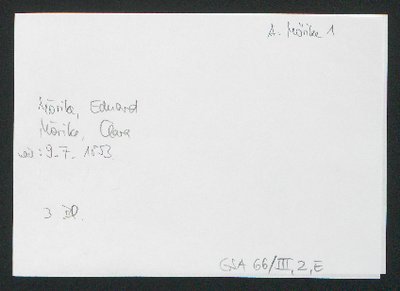 A. Mörike 1
Mörike, Eduard
Mörike, Clara
: 9.7. 1853
3 Bl.
GSA 66/III, 2, E